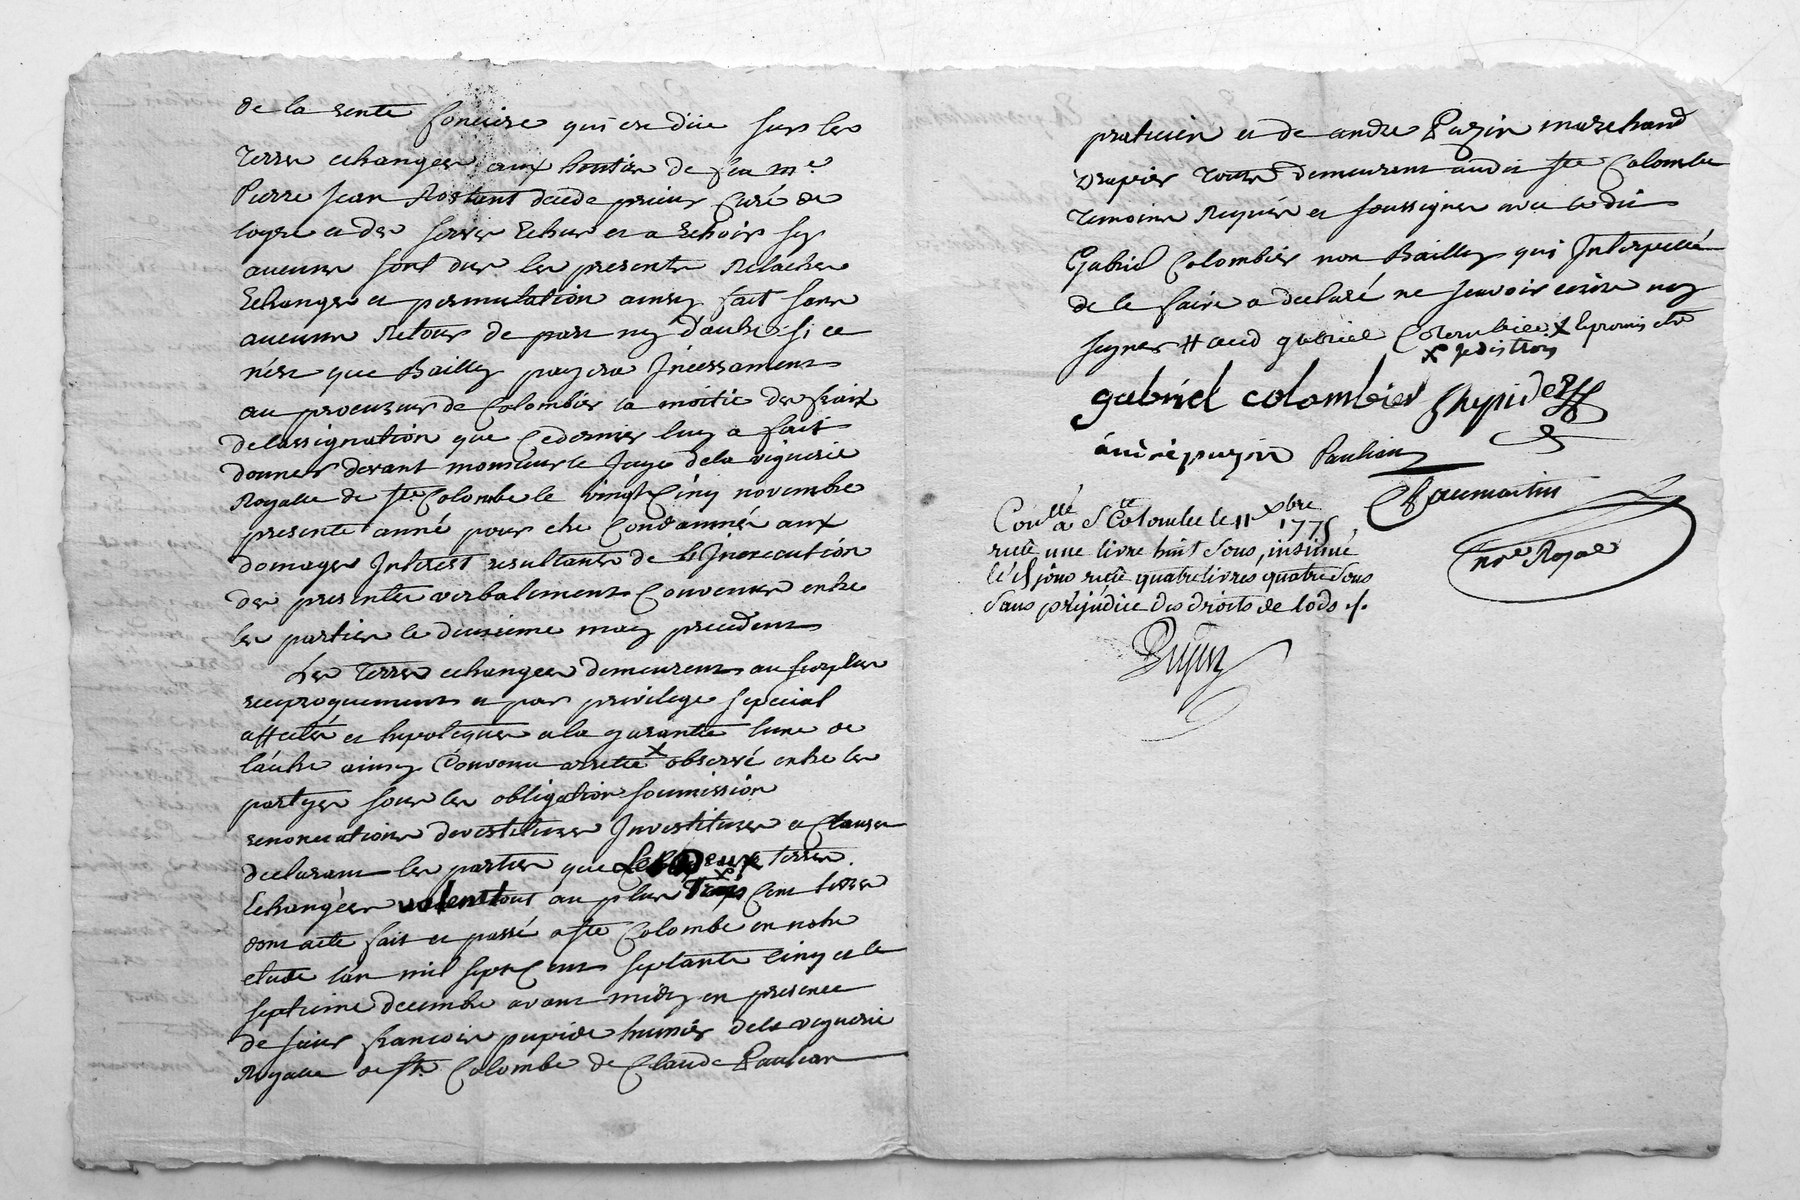 de la rente fonciere qui est düe sur les
terres echangées aux hoirs de feu m.e
Pierre Jean Rostant decedé prieur Curé de
loyre et des servis Echus et a Echoir sy
aucuns sont dus les presents Relaches
Echanges et permutation ainsy fait sans
aucuns Retour de part ny d'autre si ce
n'est que Bailly payera Incessament
au procureur de Colombier la moitié des fraix
de lassignation que Ce dernier luy a fait
donner devant monsieur le Juge de la viguerie
Royalle de ste Colombe le vingt Cinq novembre
presente anné pour etre Condamné aux
domages Interest resultants de L'Inexecution
des presentes verbalement Convenues entre
les parties le deuxieme may precedent
Les Terres echangées demeurent au surplus
reciproquement et par privilege special
affectés et hipotequés a la garantie lune de
lautre ainsy Convenu arreté x observé entre les
partyes sous les obligation soumission
renonciations devestitures Investitures et Clauses
declarant les parties que Les Deux terres
Echangées valent tout au plus Trois Cent livres
dont acte fait et passé a ste Colombe en notre
etude l'an mil sept Cent septante Cinq et le
septieme decembre avant midy en presence
de sieur françois pupide huissier de la viguerie
Royalle de ste Colombe de Claude Paulian
praticien et de andré Pazin marchand
drapier tous demeurant audit ste Colombe
temoins Requis et soussignés avec le dit
Gabriel Colombier non Bailly qui Interpellé
de le faire a declaré ne scavoir ecrire ny
signer # aud gabriel Colombier x lepromis etc
x je dis trois
gabriel colombier
andré pazin Paulian
Chaumartin
nre Royal
Conllé a Ste Colombe le 11 xbre
1775
recü une livre huit sous, insinué
led jour recü quatre livres quatre sous
sans préjudice des droits de lods ./.